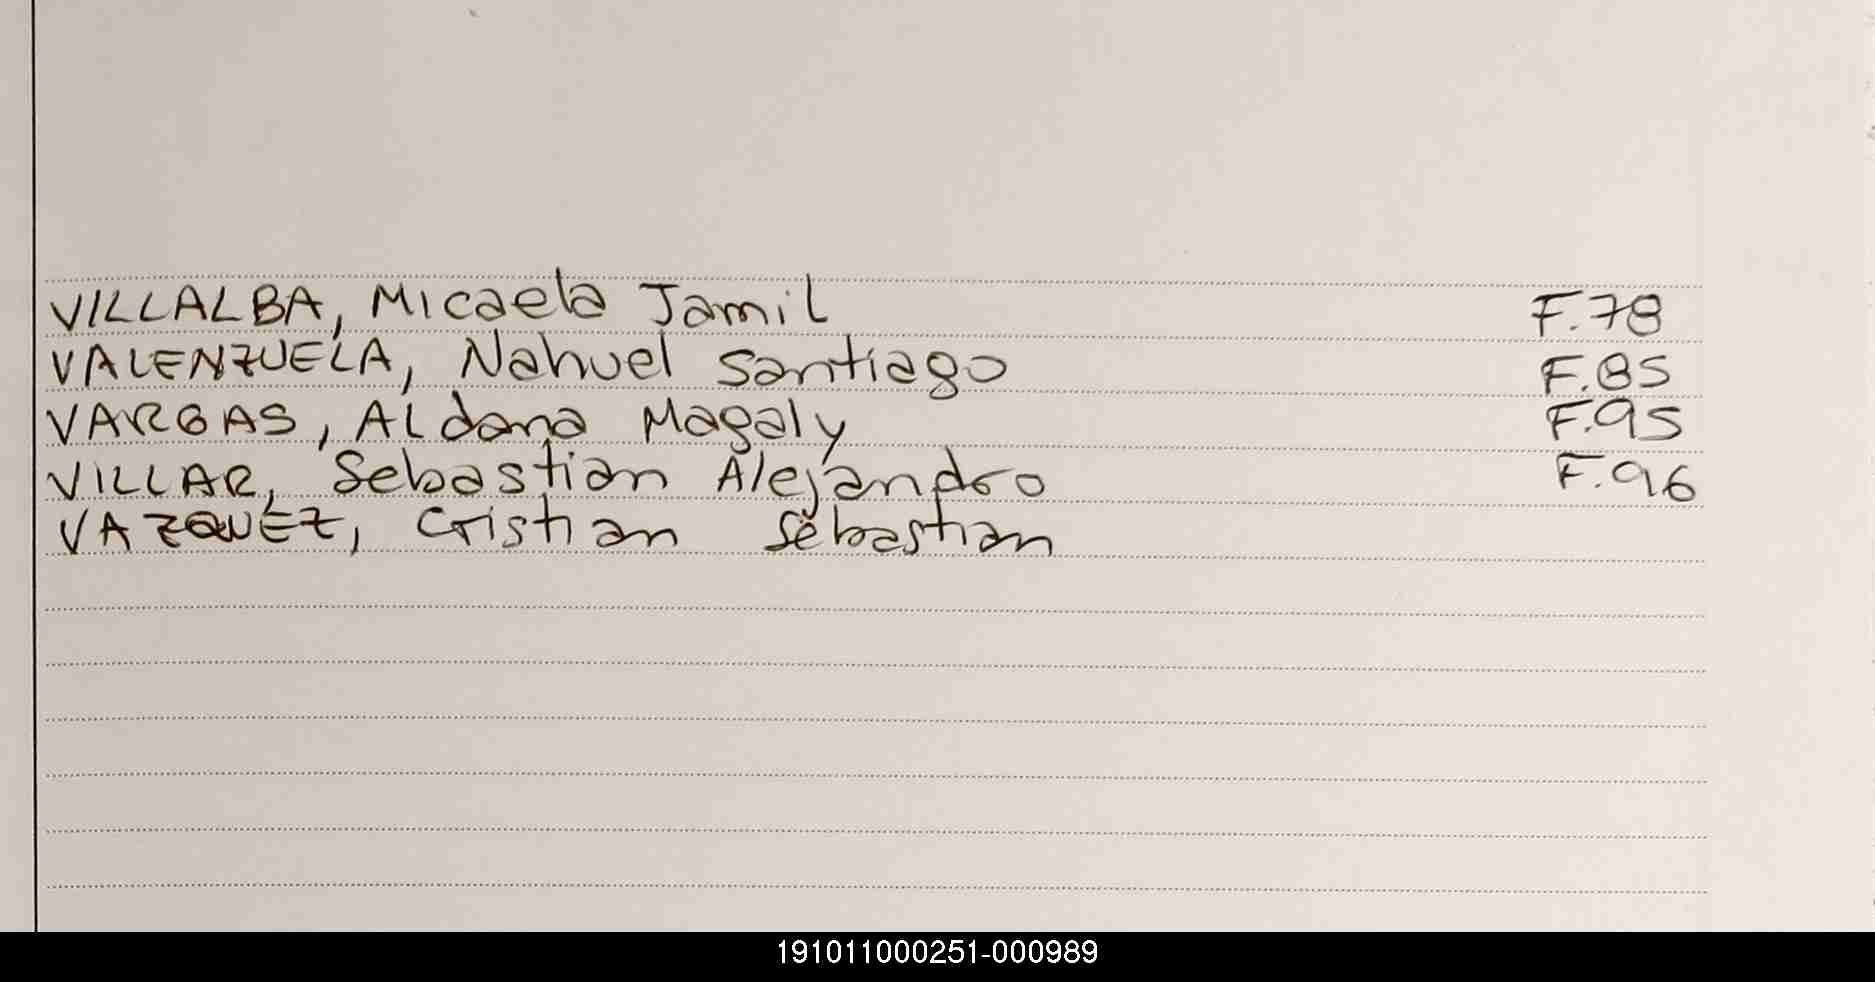 VILLALBA, Micaela Jamil F.78
VALENZUELA, Nahuel Santiago F.85
VARGAS, Aldana Magaly F.95
VILLAR, Sebastian Alejandro F.96
VAZQUEZ, Cristian Sebastian
191011000251-000989